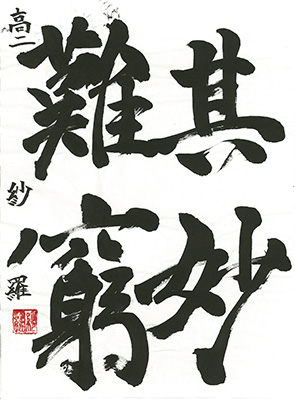 其妙
難窮
高二 紗羅